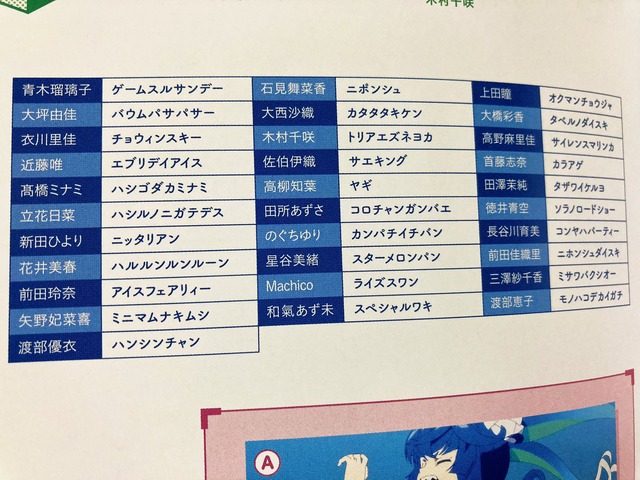 木村千咲
青木瑠璃子 ゲームスルサンデー
大坪由佳 バウムパサパサー
衣川里佳 チョウィンスキー
近藤唯 エブリデイアイス
髙橋ミナミ ハシゴダカミナミ
立花日菜 ハシルノニガテデス
新田ひより ニッタリアン
花井美春 ハルルンルンルーン
前田玲奈 アイスフェアリィー
矢野妃菜喜 ミニマムナキムシ
渡部優衣 ハンシンチャン
石見舞菜香 ニポンシュ
大西沙織 カタタタキケン
木村千咲 トリアエズネヨカ
佐伯伊織 サエキング
高柳知葉 ヤギ
田所あずさ コロチャンガンバエ
のぐちゆり カンパチイチバン
星谷美緒 スターメロンパン
Machico ライズスワン
和氣あず未 スペシャルワキ
上田瞳 オクマンチョウジャ
大橋彩香 タベルノダイスキ
高野麻里佳 サイレンスマリンカ
首藤志奈 カラアゲ
田澤茉純 タザワイケルヨ
徳井青空 ソラノロードショー
長谷川育美 コンヤハパーティー
前田佳織里 ニホンシュダイスキ
三澤紗千香 ミサワバクシオー
渡部恵子 モノハコデカイガチ
A